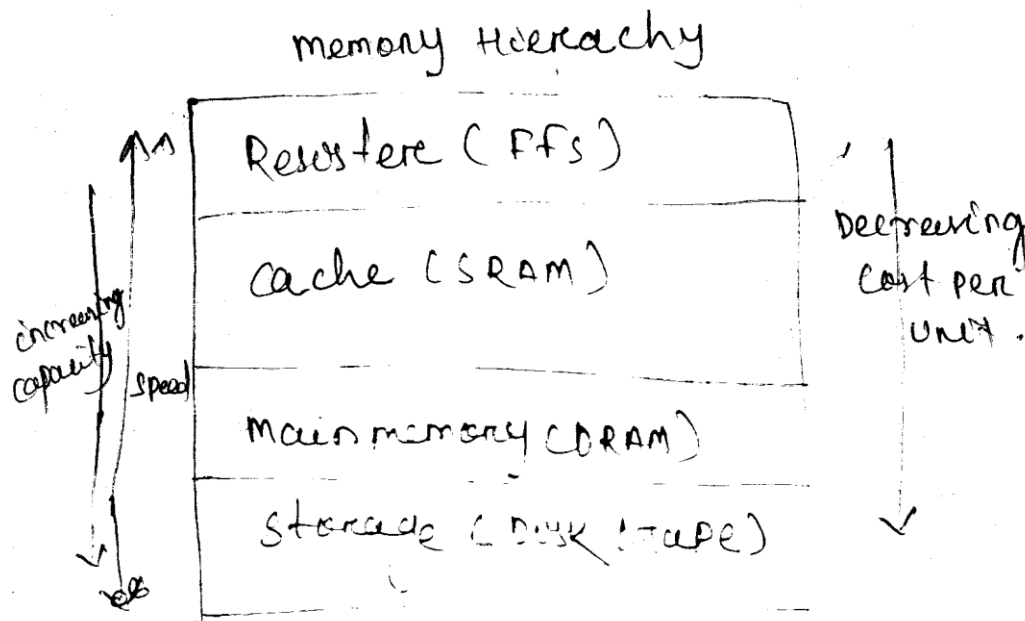 memory Hierachy
Resistere (FFs)
Cache (SRAM)
Main memory (DRAM)
Storage (Disk / Tape)
increasing
capacity
speed
Decreasing
Cost per
unit.